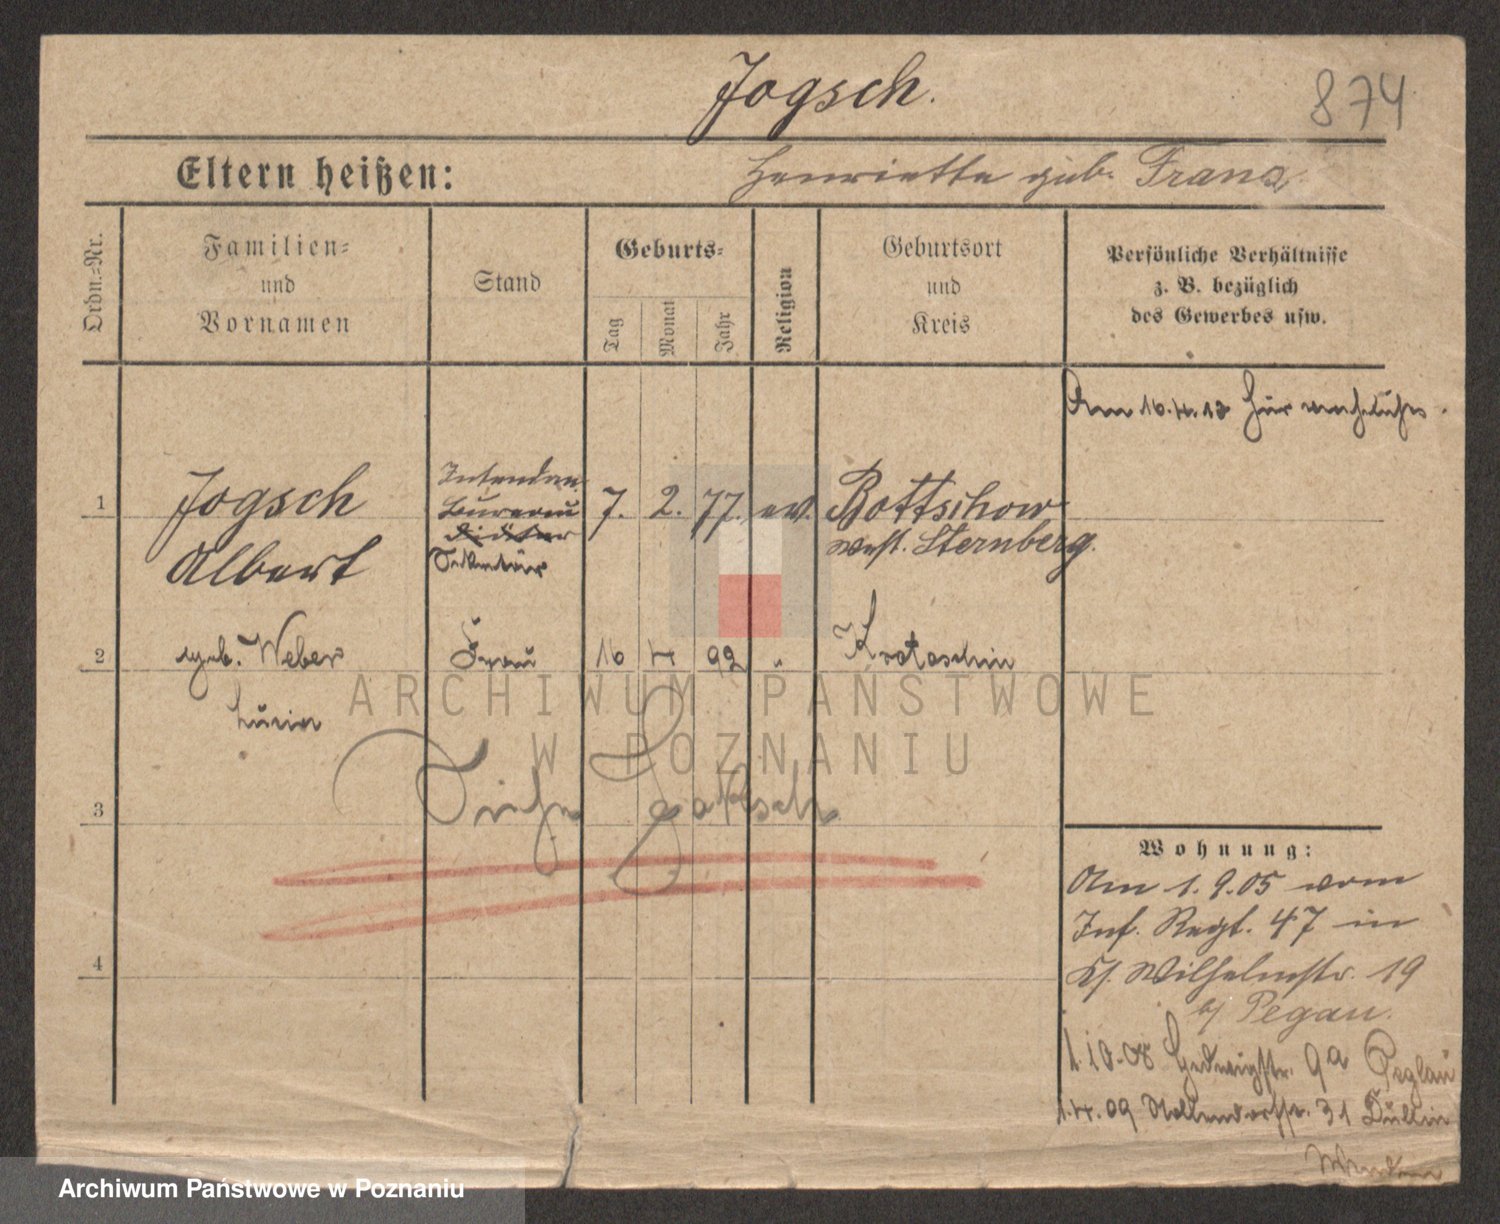 Jogsch.
874
Eltern heißen:
Henriette geb. Franz
Ordn.-Nr.
Familien-
und
Vornamen
Stand
Geburts-
Tag
Monat
Jahr
Religion
Geburtsort
und
Kreis
Persönliche Verhältnisse
z. B. bezüglich
des Gewerbes usw.
Am 16.4.12 hier
1
Jogsch
Albert
Intendan.
Bureau
Diätar
Sekretär
7.
2.
77.
ev.
Bottschow
West. Sternberg.
2
geb. Weber
Luzia
Frau
16
4
92
"
Krotoschin
ARCHIWUM PAŃSTWOWE
W POZNANIU
3
Siehe Jaksch
4
Wohnung:
Am 1.9.05 vom
Inf. Regt. 47 in
Wilhelmstr. 19
b/ Pegau.
1.10.08 Hedwigstr. 9a Peglau
1.4.09 Nollendorfstr. 31
Archiwum Państwowe w Poznaniu